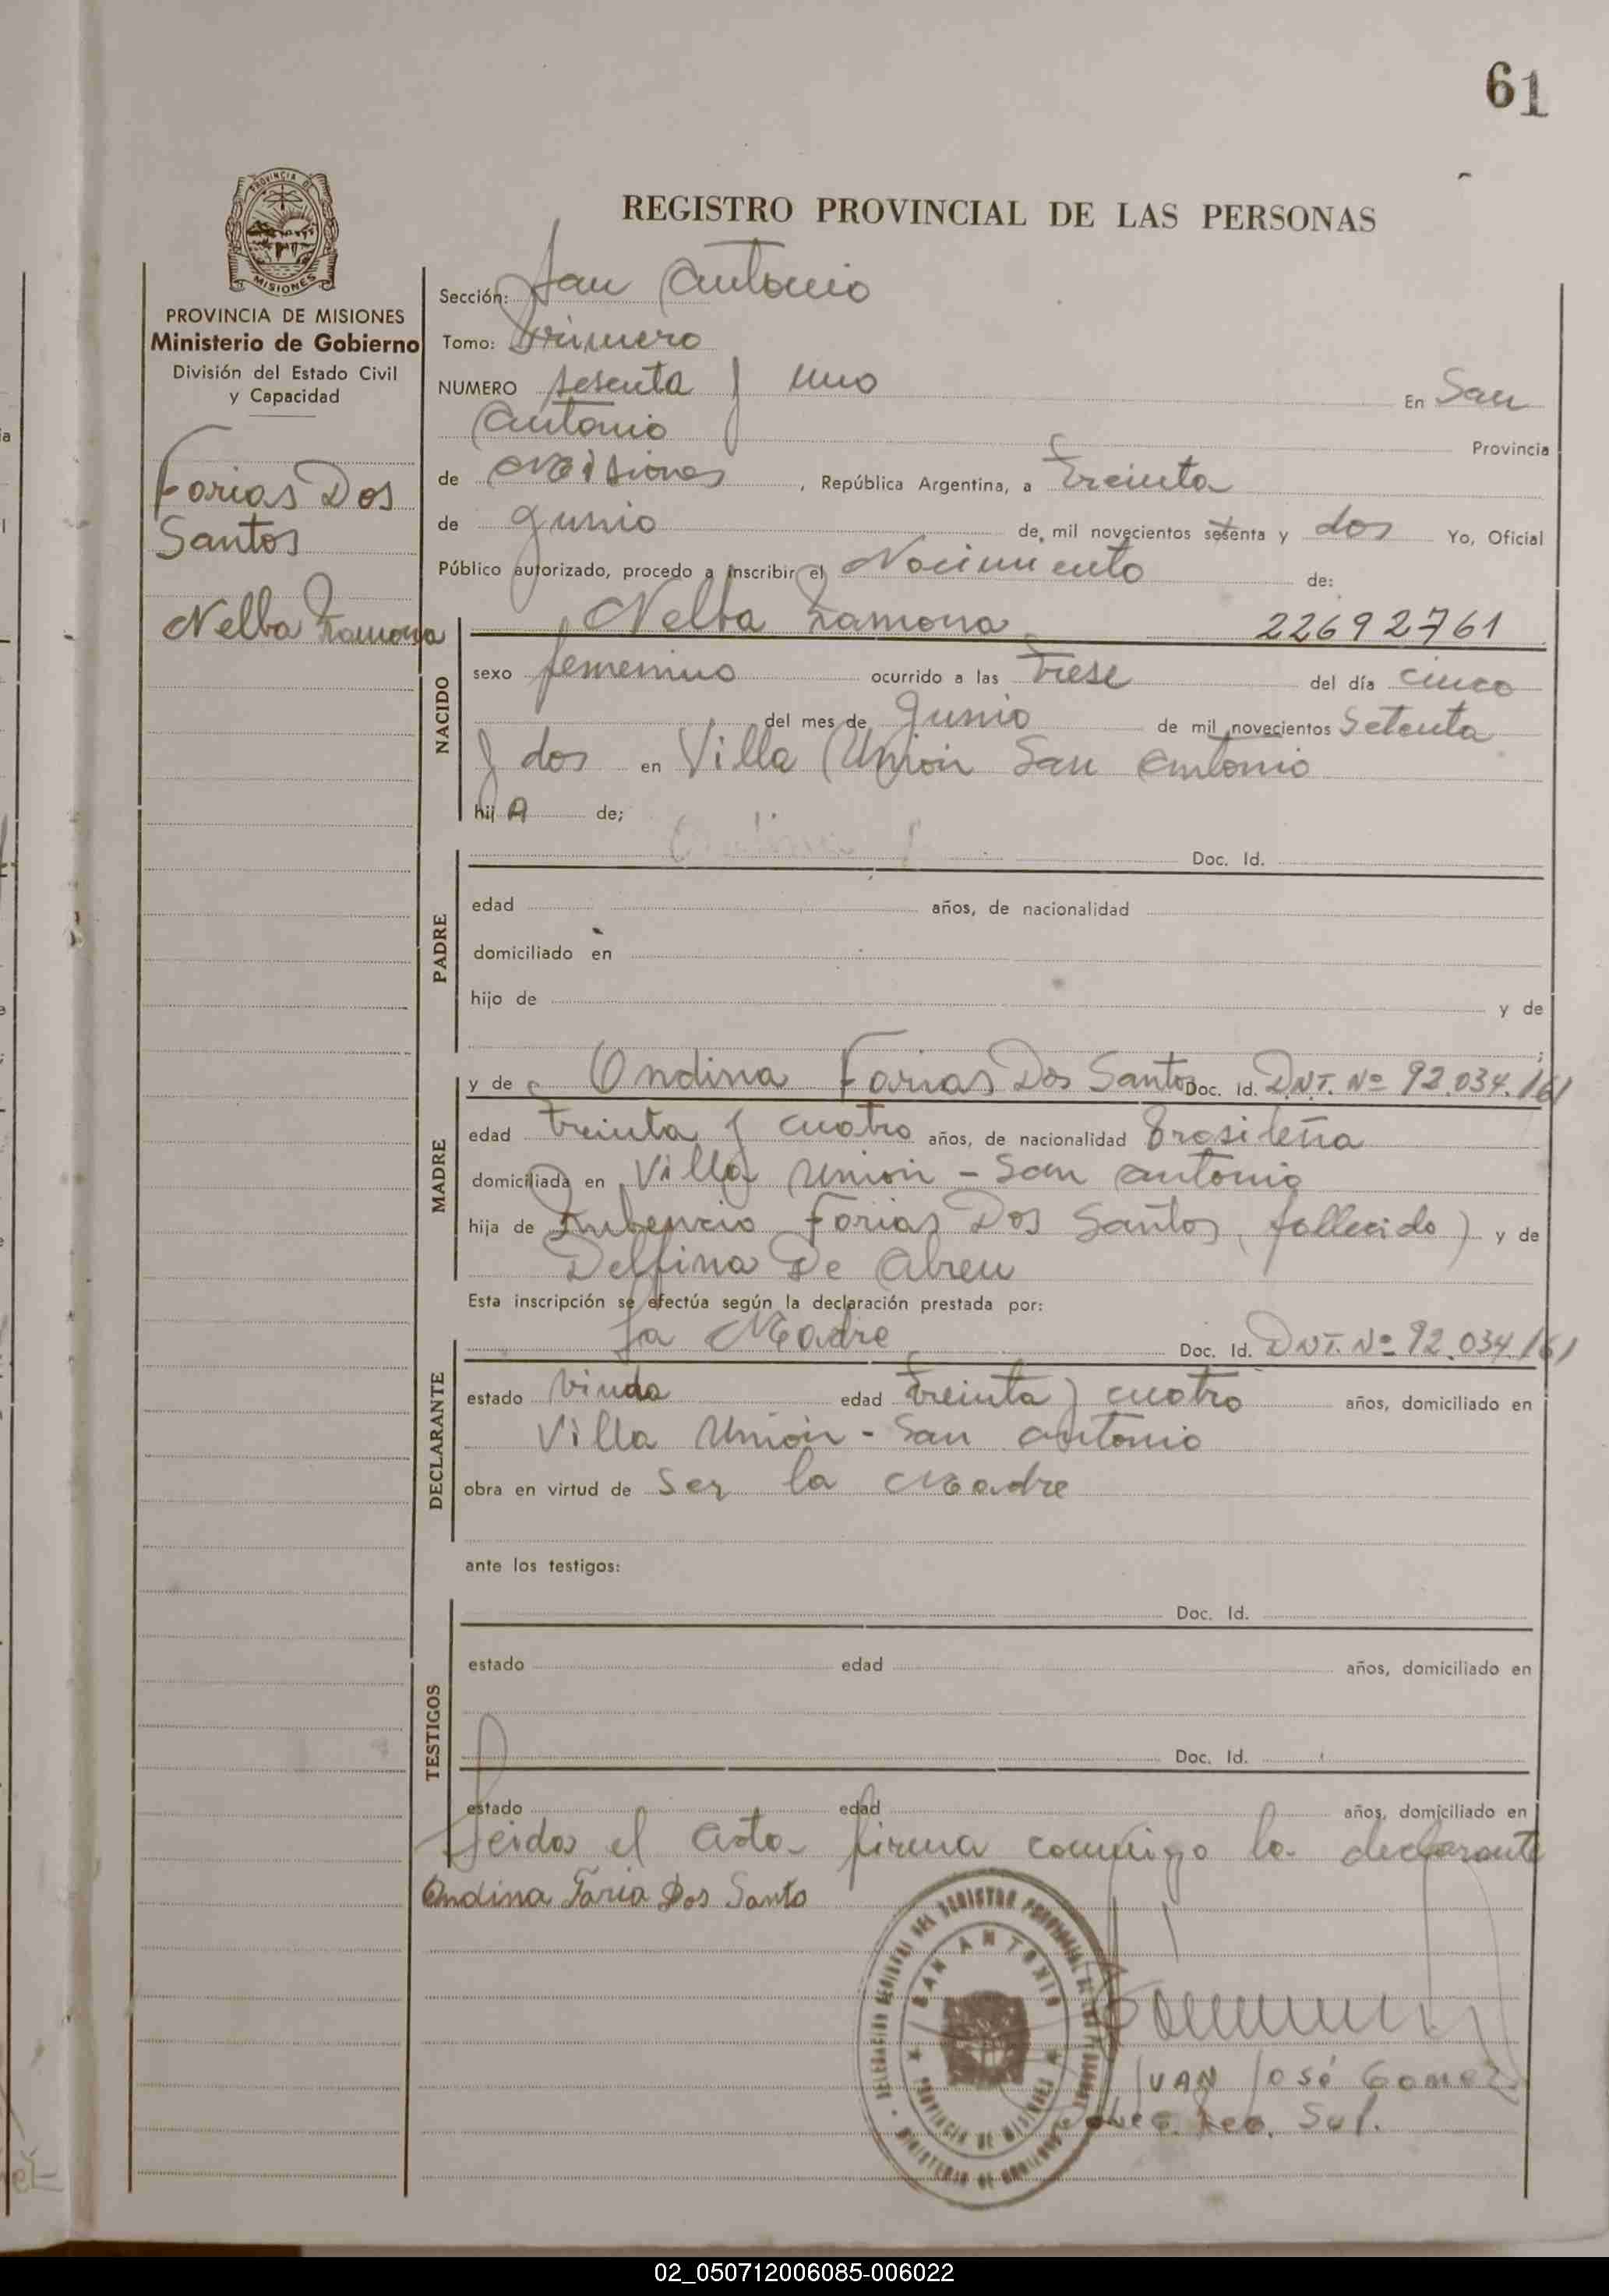 61
PROVINCIA DE MISIONES
REGISTRO PROVINCIAL DE LAS PERSONAS
PROVINCIA DE MISIONES
Ministerio de Gobierno
División del Estado Civil
y Capacidad
Forias Dos
Santos
Nelba Ramona
Sección: San Antonio
Tomo: Primero
NUMERO sesenta y uno En San
Antonio Provincia
de Misiones, República Argentina, a Treinta
de Junio de mil novecientos setenta y dos Yo, Oficial
Público autorizado, procedo a inscribir el Nacimiento de:
Nelba Ramona 22692761
NACIDO
sexo femenino ocurrido a las Trese del día cinco
del mes de Junio de mil novecientos Setenta
y dos en Villa Unión San Antonio
hij A de;
PADRE
Doc. Id.
edad años, de nacionalidad
domiciliado en
hijo de y de
MADRE
y de Ondina Farias Dos Santos Doc. Id. DNI. Nº 92.034.161
edad Treinta y cuatro años, de nacionalidad Brasileña
domiciliada en Villa Unión - San Antonio
hija de Farias Dos Santos, fallecido) y de
Delfina De Abreu
Esta inscripción se efectúa según la declaración prestada por:
DECLARANTE
La Madre Doc. Id. DNI. Nº 92.034.161
estado Viuda edad Treinta y cuatro años, domiciliado en
Villa Unión - San Antonio
obra en virtud de Ser la Madre
ante los testigos:
TESTIGOS
Doc. Id.
estado edad años, domiciliado en
Doc. Id.
estado edad años, domiciliado en
Leida el Acta firma conmigo la declarante
Ondina Faria Dos Santo
DELEGACION REGIONAL DEL REGISTRO PROVINCIAL DE LAS PERSONAS
SAN ANTONIO
PROVINCIA DE MISIONES
MINISTERIO DE GOBIERNO
JUAN JOSÉ GOMEZ
02_050712006085-006022